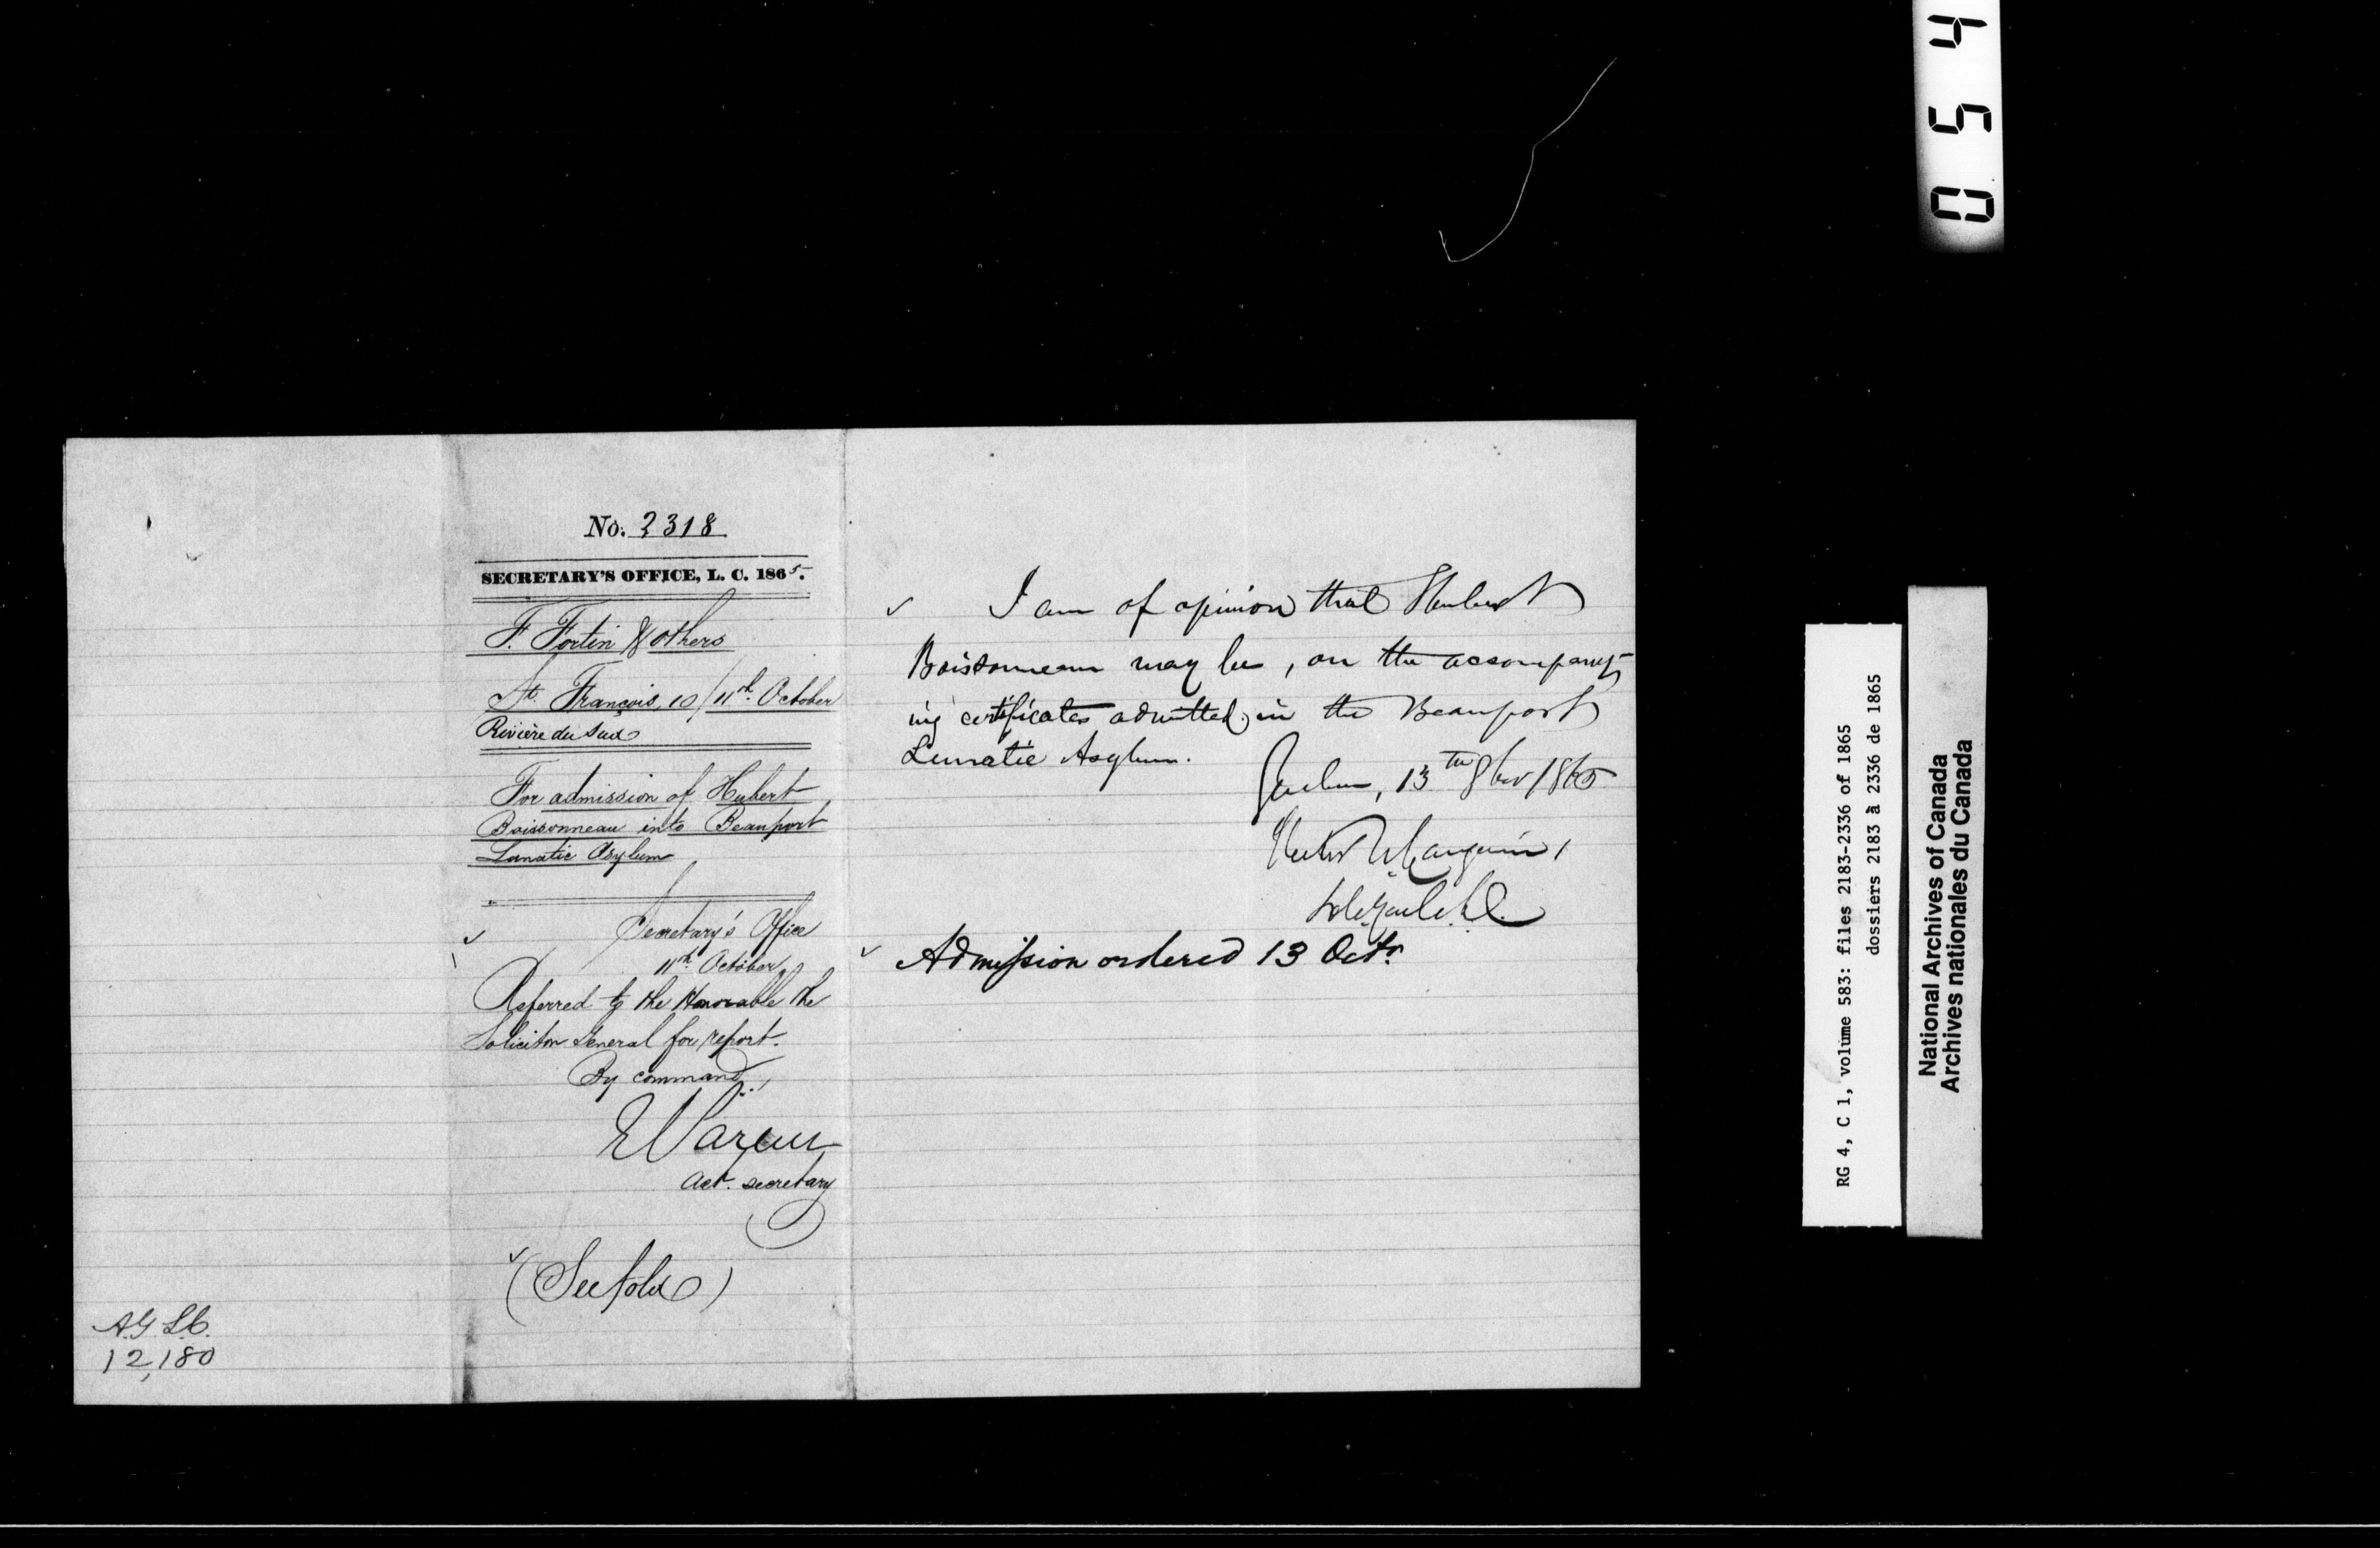 No. 2318
SECRETARY'S OFFICE, L. C. 1865.
F. Fortin & others
St. François, 10/11th. October
Rivière du Sud
For admission of Hubert
Boissonneau into Beauport
Lunatic Asylum
Secretary's Office
11th. October
Referred to the Honorable the
Solicitor General for report.
By command,
E Parent
Act. secretary
(See fold)
A.G L.C.
12,180
I am of opinion that Hubert
Boissonneau may be, on the accompany-
ing certificates admitted in the Beauport
Lunatic Asylum.
Quebec, 13th 8ber 1865
Hector L. Langevin,
Sol. Gen. L. C.
Admission ordered 13 Octr.
0 5 4
RG 4, C 1, volume 583: files 2183-2336 of 1865
dossiers 2183 à 2336 de 1865
National Archives of Canada
Archives nationales du Canada